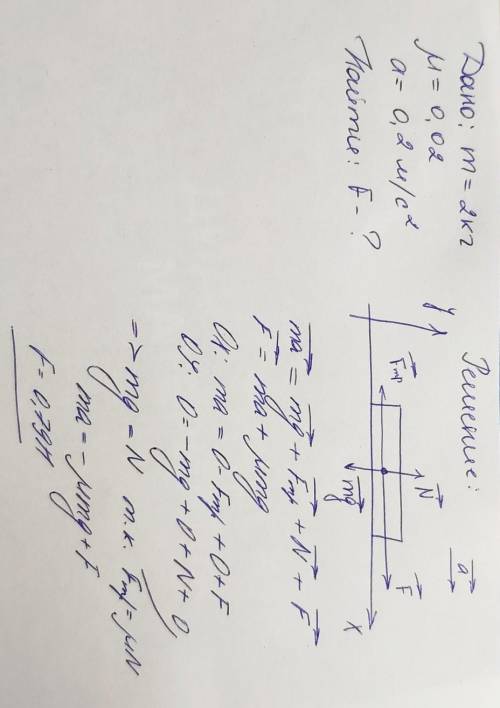 Дано: m = 2кг
μ = 0,02
a = 0,2 м/с²
Найти: F - ?
Решение:
a
y
N
Fтр
F
mg
x
ma = mg + Fтр + N + F
F = ma + μmg
Ox: ma = 0 - Fтр + 0 + F
Oy: 0 = -mg + 0 + N + 0
=> mg = N т.к. Fтр = μN
ma = -μmg + F
F = 0,79Н